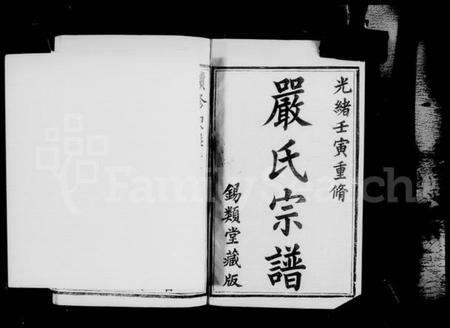 光緒壬寅重脩
嚴氏宗譜
錫類堂藏版
FamilySearch